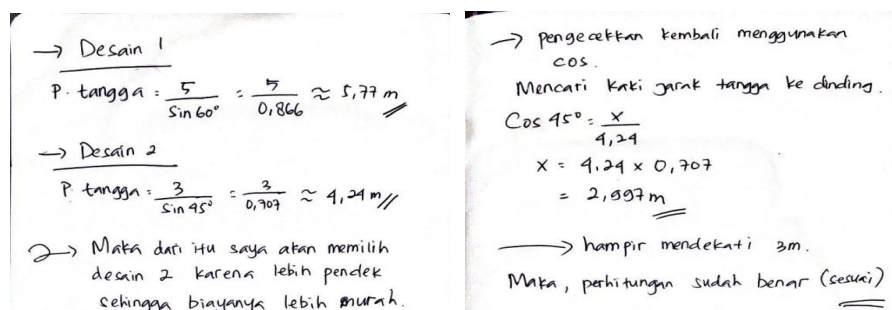 → Desain 1
P. tangga = 5 / Sin 60° = 5 / 0,866 ≈ 5,77 m
→ Desain 2
P. tangga = 3 / Sin 45° = 3 / 0,707 ≈ 4,24 m
2→ Maka dari itu saya akan memilih
desain 2 karena lebih pendek
sehingga biayanya lebih murah.
→ pengecekkan kembali menggunakan
cos.
Mencari kaki jarak tangga ke dinding.
Cos 45° = x / 4,24
x = 4.24 x 0,707
= 2,997 m
→ hampir mendekati 3m.
Maka, perhitungan sudah benar (sesuai)